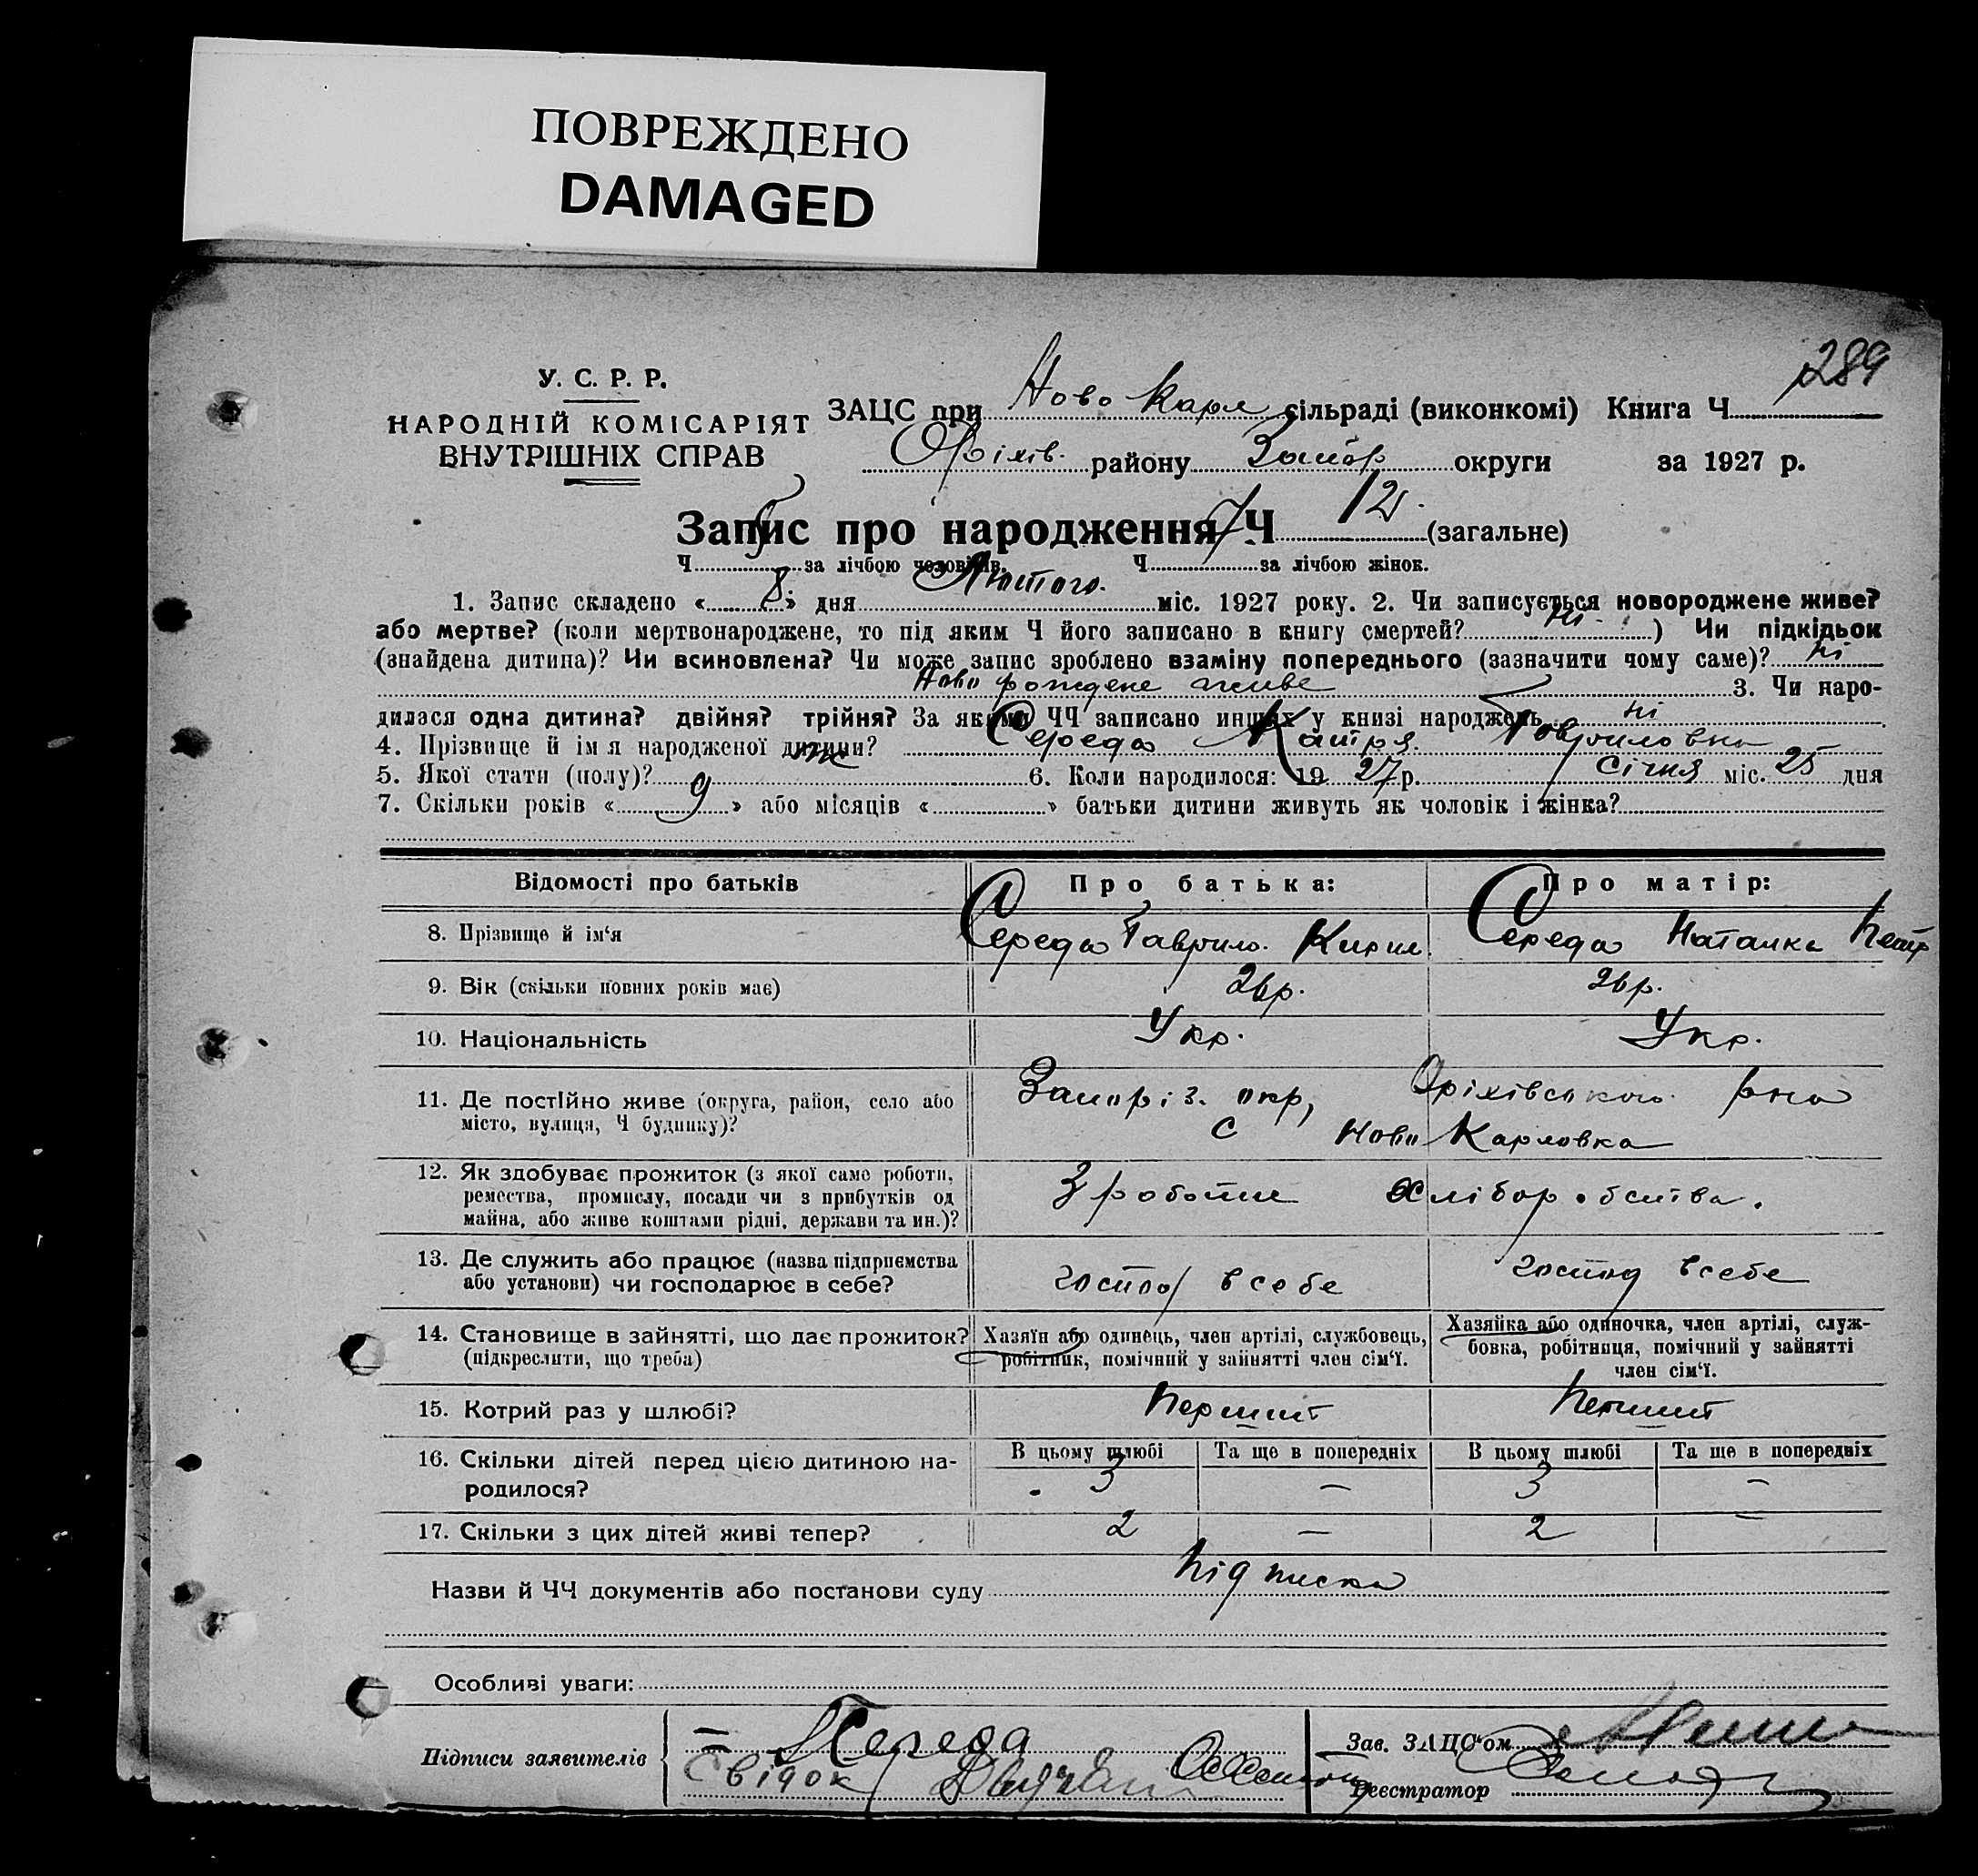 ПОВРЕЖДЕНО
DAMAGED
289
У. С. Р. Р.
НАРОДНІЙ КОМІСАРІЯТ
ВНУТРІШНІХ СПРАВ
ЗАЦС при Ново Карл сільраді (виконкомі) Книга Ч
Оріхів. району Запор округи за 1927 р.
Запис про народження Ч 12. (загальне)
Ч 5 за лічбою чоловіків. Ч 7 за лічбою жінок.
1. Запис складено « 8 » дня Лютого. міс. 1927 року. 2. Чи записується новороджене живе?
або мертве? (коли мертвонароджене, то під яким Ч його записано в книгу смертей? ні ) Чи підкідьок
(знайдена дитина)? Чи всиновлена? Чи може запис зроблено взаміну попереднього (зазначити чому саме)? ні
Ново рождене живе 3. Чи наро-
дилася одна дитина? двійня? трійня? За якими ЧЧ записано инших у книзі народжень ні
4. Прізвище й ім я народженої дитини? Середа Катря Гавриловна
5. Якої стати (полу)? ж 6. Коли народилося: 19 27 р. Січня міс. 25 дня
7. Скільки років « 9 » або місяців « » батьки дитини живуть як чоловік і жінка?
Відомості про батьків Про батька: Про матір:
8. Прізвище й ім‘я Середа Гаврило. Кирил Середа Наталка Петр
9. Вік (скільки повних років має) 26р. 26р.
10. Національність Укр. Укр.
11. Де постійно живе (округа, район, село або місто, вулиця, Ч будинку)? Запоріз. окр, Оріхівського рна
с Ново Карловка
12. Як здобуває прожиток (з якої саме роботи,
ремества, промислу, посади чи з прибутків од
майна, або живе коштами рідні, держави та ин.)? З роботи хліборобства.
13. Де служить або працює (назва підприємства
або установи) чи господарює в себе? господ в себе господ в себе
14. Становище в зайнятті, що дає прожиток?
(підкреслити, що треба)
Хазяїн або одинець, член артілі, службовець,
робітник, помічний у зайнятті член сім‘ї.
Хазяйка або одиночка, член артілі, служ-
бовка, робітниця, помічний у зайнятті
член сім‘ї.
15. Котрий раз у шлюбі? Перший Перший
16. Скільки дітей перед цією дитиною на-
родилося?
В цьому шлюбі Та ще в попередніх В цьому шлюбі Та ще в попередніх
3 — 3 —
17. Скільки з цих дітей живі тепер? 2 — 2 —
Назви й ЧЧ документів або постанови суду підписка
Особливі уваги:
Підписи заявителів Середа
Свідок
Зав. ЗАЦС‘ом
Реєстратор